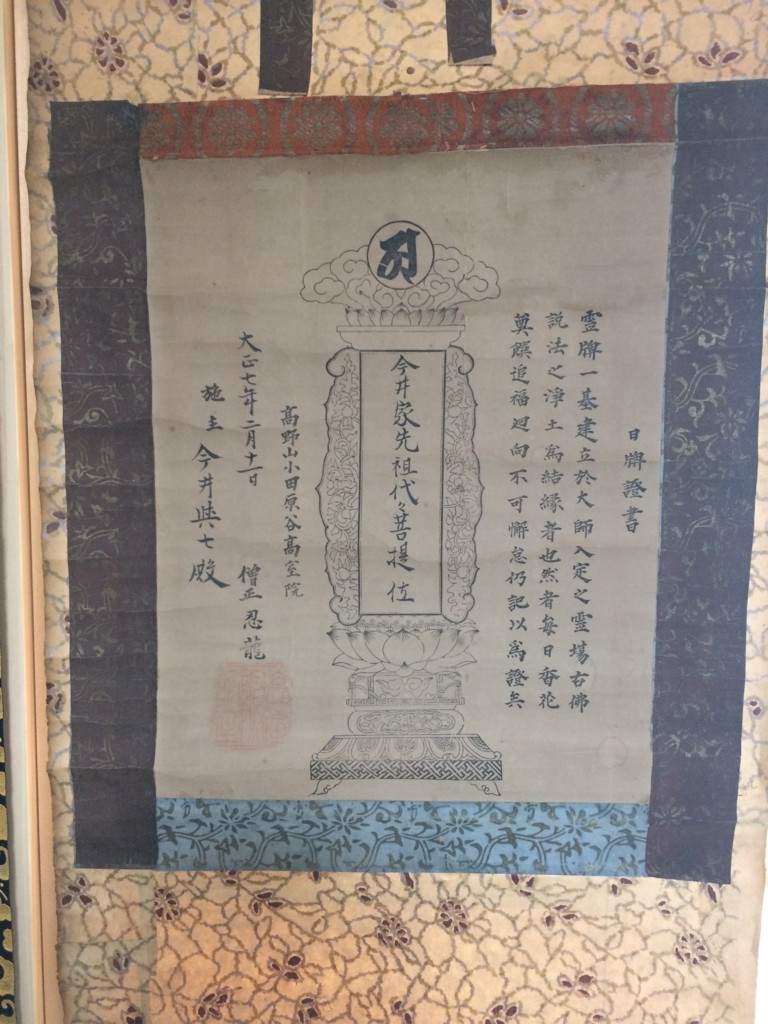 日牌證書
霊牌一基建立於大師入定之霊場右佛
説法之淨土為結縁者也然者毎日香花
奠饌追福廻向不可懈怠仍記以為證矣
今井家先祖代々菩提位
高野山小田原谷高室院
大正七年二月十一日
僧正忍龍
施主今井與七殿